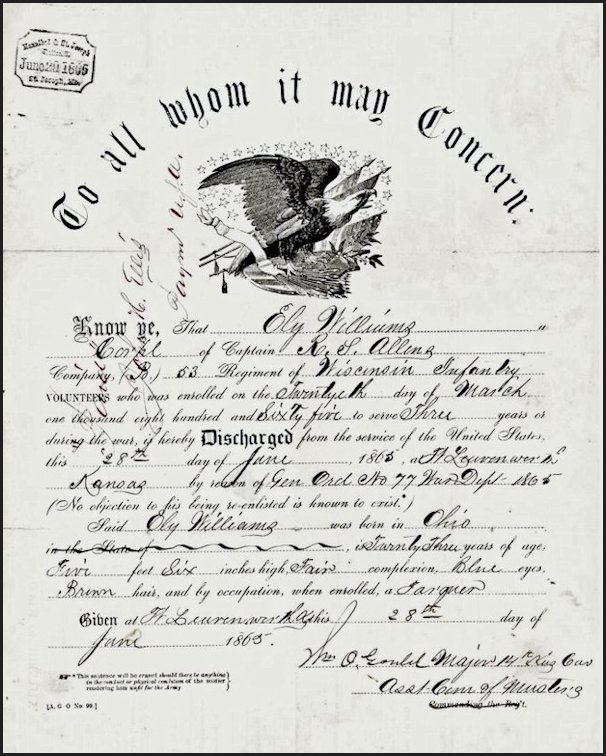 Hannibal & St. Joseph
June 31 1865
St. Joseph, Mo.
To all whom it may Concern:
Paid
Paymr U.S.A.
Know ye, That Ely Williams "
Corpl of Captain R. S. Allens
Company, (B.) 53 Regiment of Wisconsin Infantry
VOLUNTEERS who was enrolled on the Twentyeth day of March
one thousand eight hundred and Sixty five to serve Three years or
during the war, is hereby Discharged from the service of the United States,
this 28th day of June, 1865, at Ft Leavenworth
Kansas by reason of Gen Ord No 77 War Dept 1865
(No objection to his being re-enlisted is known to exist.*)
Said Ely Williams was born in Ohio
in the State of , is Twenty Three years of age,
Five feet Six inches high, Fair complexion, Blue eyes,
Brown hair, and by occupation, when enrolled, a Farmer
Given at Ft Leavenworth Ks this 28th day of
June 1865.
Wm O. Gould Major 14th Cav
Asst Com of Musters
Commanding the Reg't.
* This sentence will be erased should there be anything
in the conduct or physical condition of the soldier
rendering him unfit for the Army
[A. G. O No. 99.]